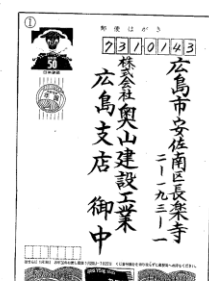 ①
郵便はがき
50
7310143
広島市安佐南区長楽寺
二ー一九三ー一
株式会社奥山建設工業
広島支店 御中